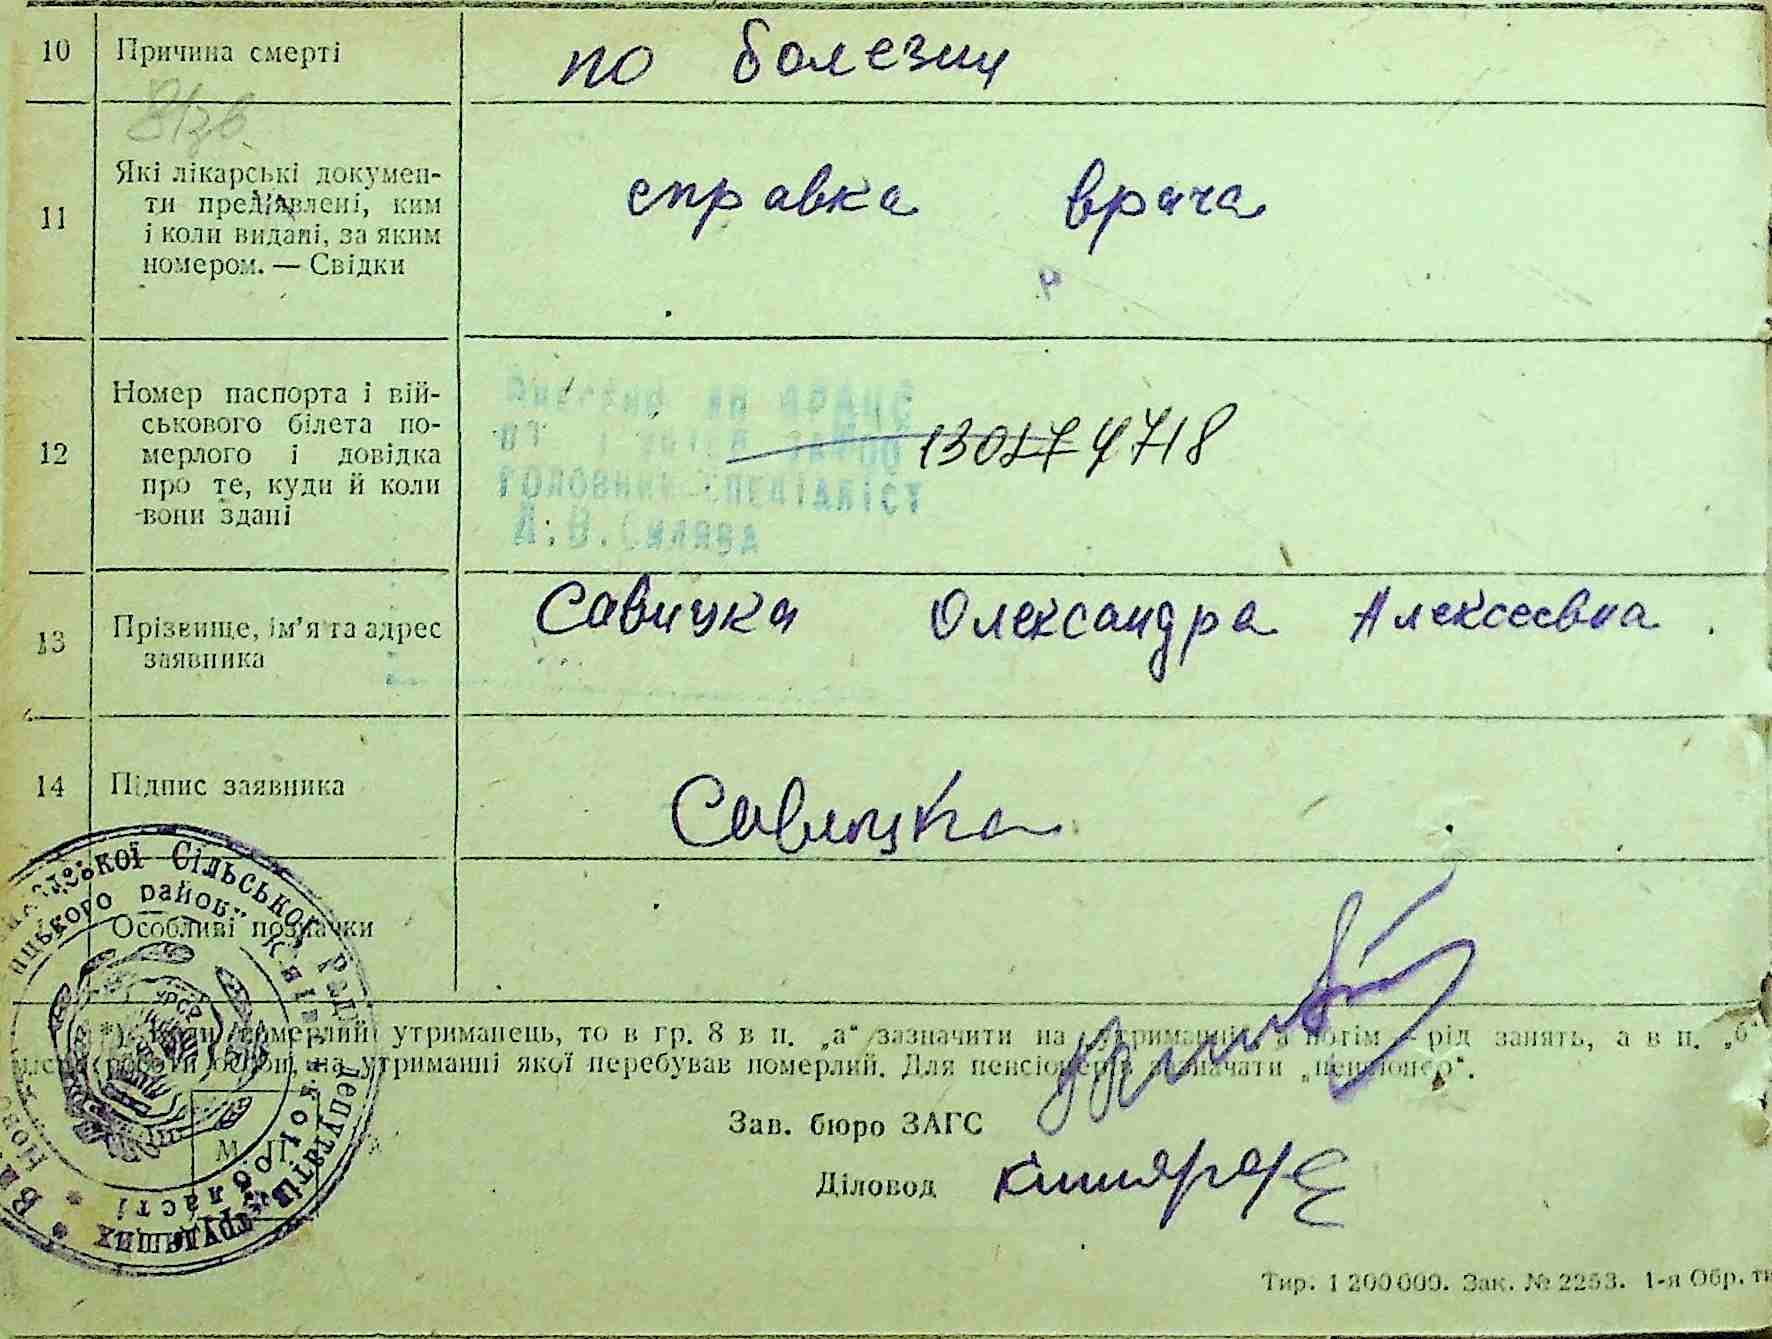 10 Причина смерті по болезни
11 Які лікарські докумен-
ти пред'явлені, ким
і коли видані, за яким
номером. — Свідки
справка врача
12 Номер паспорта і вій-
ськового білета по-
мерлого і довідка
про те, куди й коли
вони здані
головний спеціаліст
13 Прізвище, ім'я та адрес
заявника
Савицка Олександра Алексеевна
14 Підпис заявника Савицка
Особливі позначки
*) Коли померлий утриманець, то в гр. 8 в п. „а“ зазначити на утриманні, а потім рід занять, а в п. „б“
роботи особи, на утриманні якої перебував померлий. Для пенсіонерів зазначати „пенсіонер“.
Зав. бюро ЗАГС
Діловод
М. П.
Сільської Ради Депутатів Трудящих
району Київської області
УРСР
Тир. 1 200 000. Зак. № 2253. 1-я Обр. ти